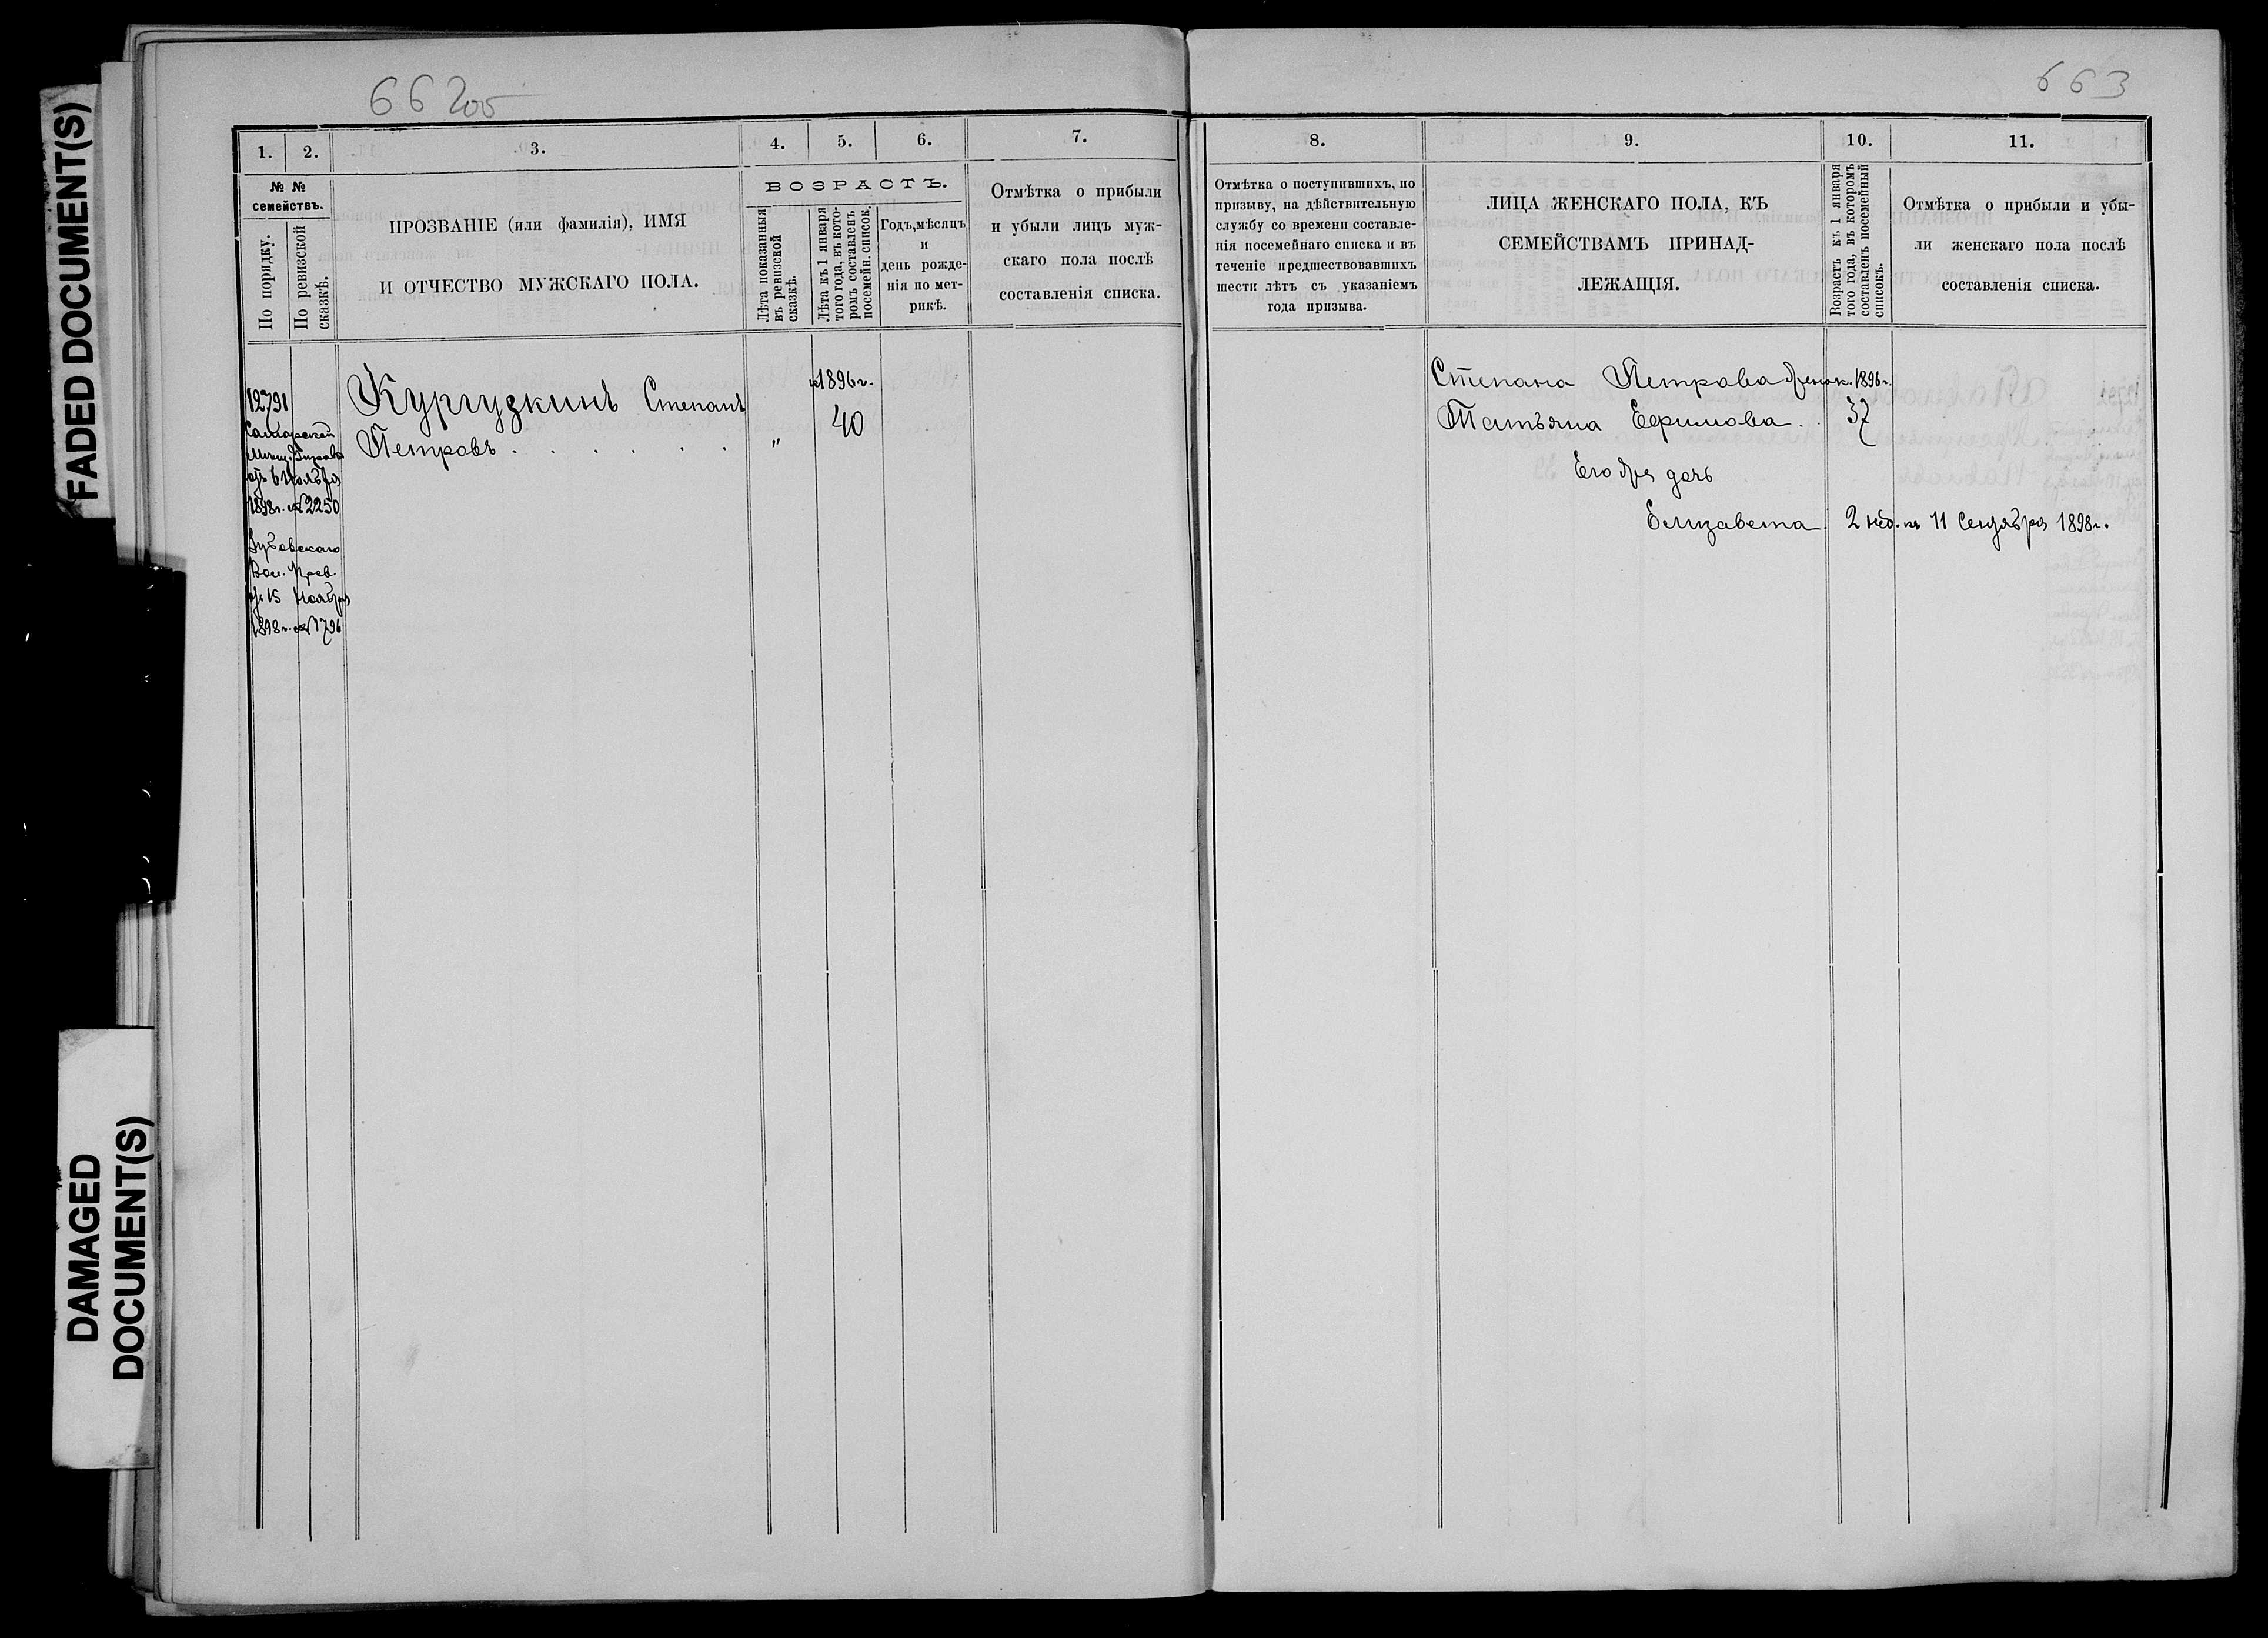 FADED DOCUMENT(S)
DAMAGED
DOCUMENT(S)
662об
1. 2. 3. 4. 5. 6. 7.
№ №
семействъ.
По порядку.
По ревизской
сказкѣ.
ПРОЗВАНІЕ (или фамилія), ИМЯ
И ОТЧЕСТВО МУЖСКАГО ПОЛА.
ВОЗРАСТЪ.
Лѣта показанныя
въ ревизской
сказкѣ.
Лѣта къ 1 января
того года, въ кото-
ромъ составленъ
посемейн. список.
Годъ, мѣсяцъ
и
день рожде-
нія по мет-
рикѣ.
Отмѣтка о прибыли
и убыли лицъ муж-
скаго пола послѣ
составленія списка.
12791
Самарской
Мѣщ. Управы
отъ 6 Ноября
1898г. № 2250
Зубовскаго
Вол. Прав.
отъ 15 Ноября
1898г. № 1796
Кургузкинъ Степанъ
Петровъ . . . . . .
"
к 1896г.
40
663
8. 9. 10. 11.
Отмѣтка о поступившихъ, по
призыву, на дѣйствительную
службу со времени составле-
нія посемейнаго списка и въ
теченіе предшествовавшихъ
шести лѣтъ съ указаніемъ
года призыва.
ЛИЦА ЖЕНСКАГО ПОЛА, КЪ
СЕМЕЙСТВАМЪ ПРИНАД-
ЛЕЖАЩІЯ.
Возрастъ къ 1 января
того года, въ которомъ
составленъ посемейный
списокъ.
Отмѣтка о прибыли и убы-
ли женскаго пола послѣ
составленія списка.
Степана Петрова жена к. 1896г.
Татьяна Ефимова . . 37
Его дочь
Елизавета. 2 нед. къ 11 Сентября 1898г.